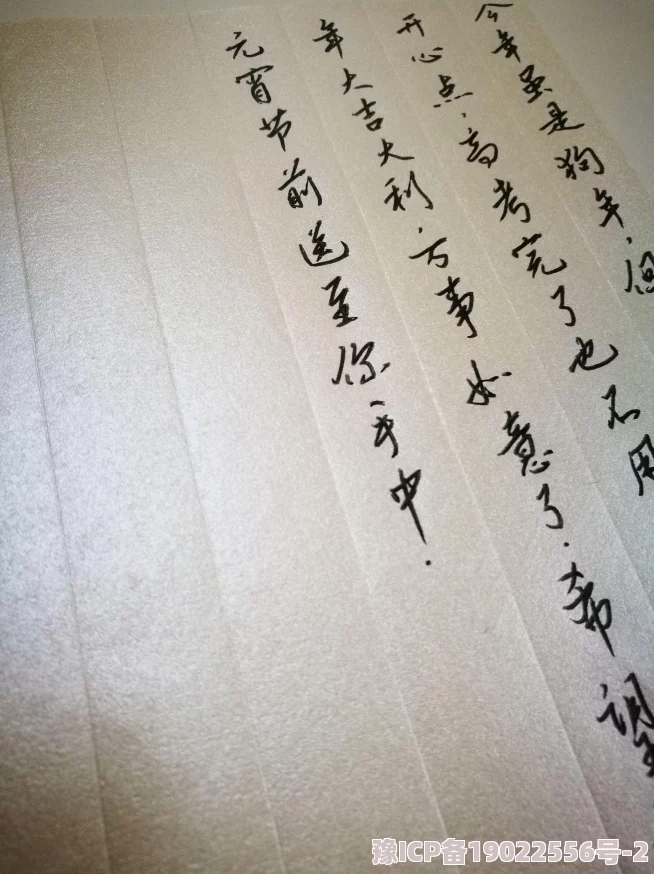 今年虽是狗年，但
开心点，高考完了也不用
年大吉大利，万事如意了．希望
元宵节前送至你手中．
豫ICP备19022556号-2